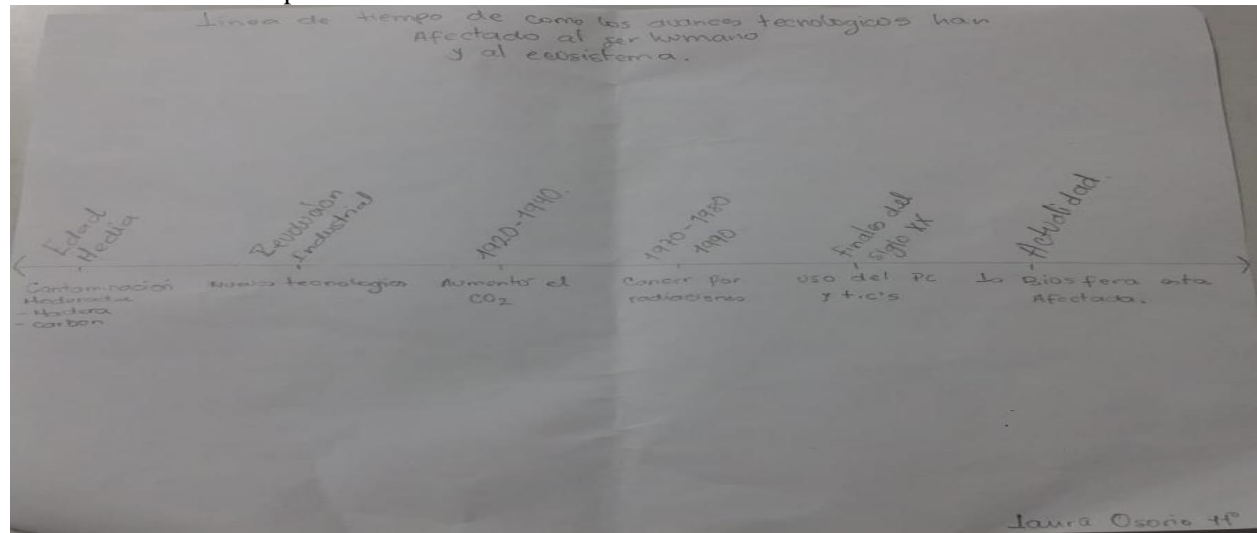 Linea de tiempo de como los avances tecnologicos han
Afectado al ser humano
y al ecosistema.
Edad
Media
Revolución
Industrial
1920-1940.
1970-1980
1990
finales del
siglo XX
Actualidad.
Contaminación
Moderada
- Madera
- carbon
Nueva tecnologia
Aumentó el
CO2
Cancer por
radiaciones
uso del PC
y t.ic's
la Biosfera esta
Afectada.
Laura Osorio 11°